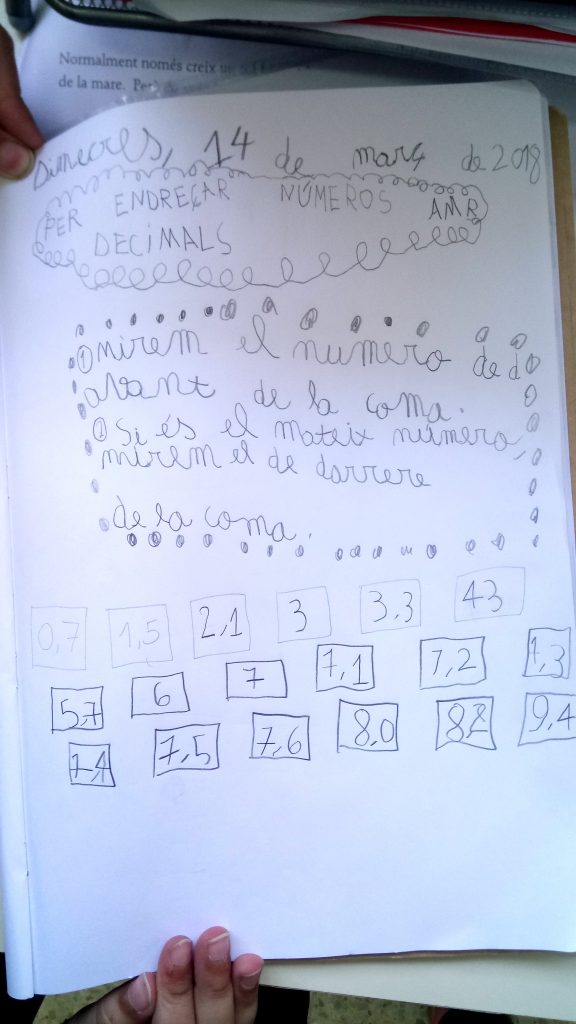 Normalment només creix un
de la mare. Però
Dimecres, 14 de març de 2018
PER ENDREÇAR NÚMEROS AMB
DECIMALS
① mirem el numero de d
avant de la coma.
② Si és el mateix número,
mirem el de darrere
de la coma.
0,7 1,5 2,1 3 3,3 43
5,7 6 7 7,1 7,2 7,3
7,4 7,5 7,6 8,0 82 9,4